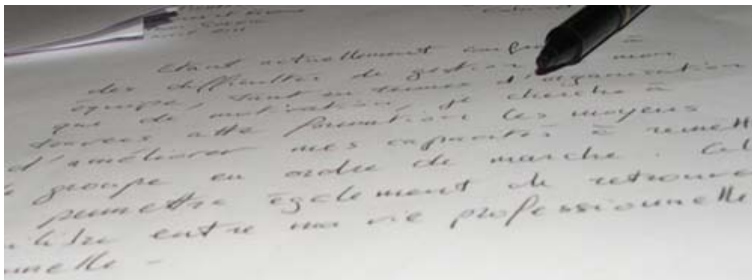 étant actuellement confronté à
des difficultés de gestion mon
équipe, tant en termes d'organisation
que de motivation, je cherche à
travers cette formation les moyens
d'améliorer mes capacités à remett
groupe en ordre de marche. Cel
permettre également de retrouve
libre entre ma vie professionnelle
nnelle -